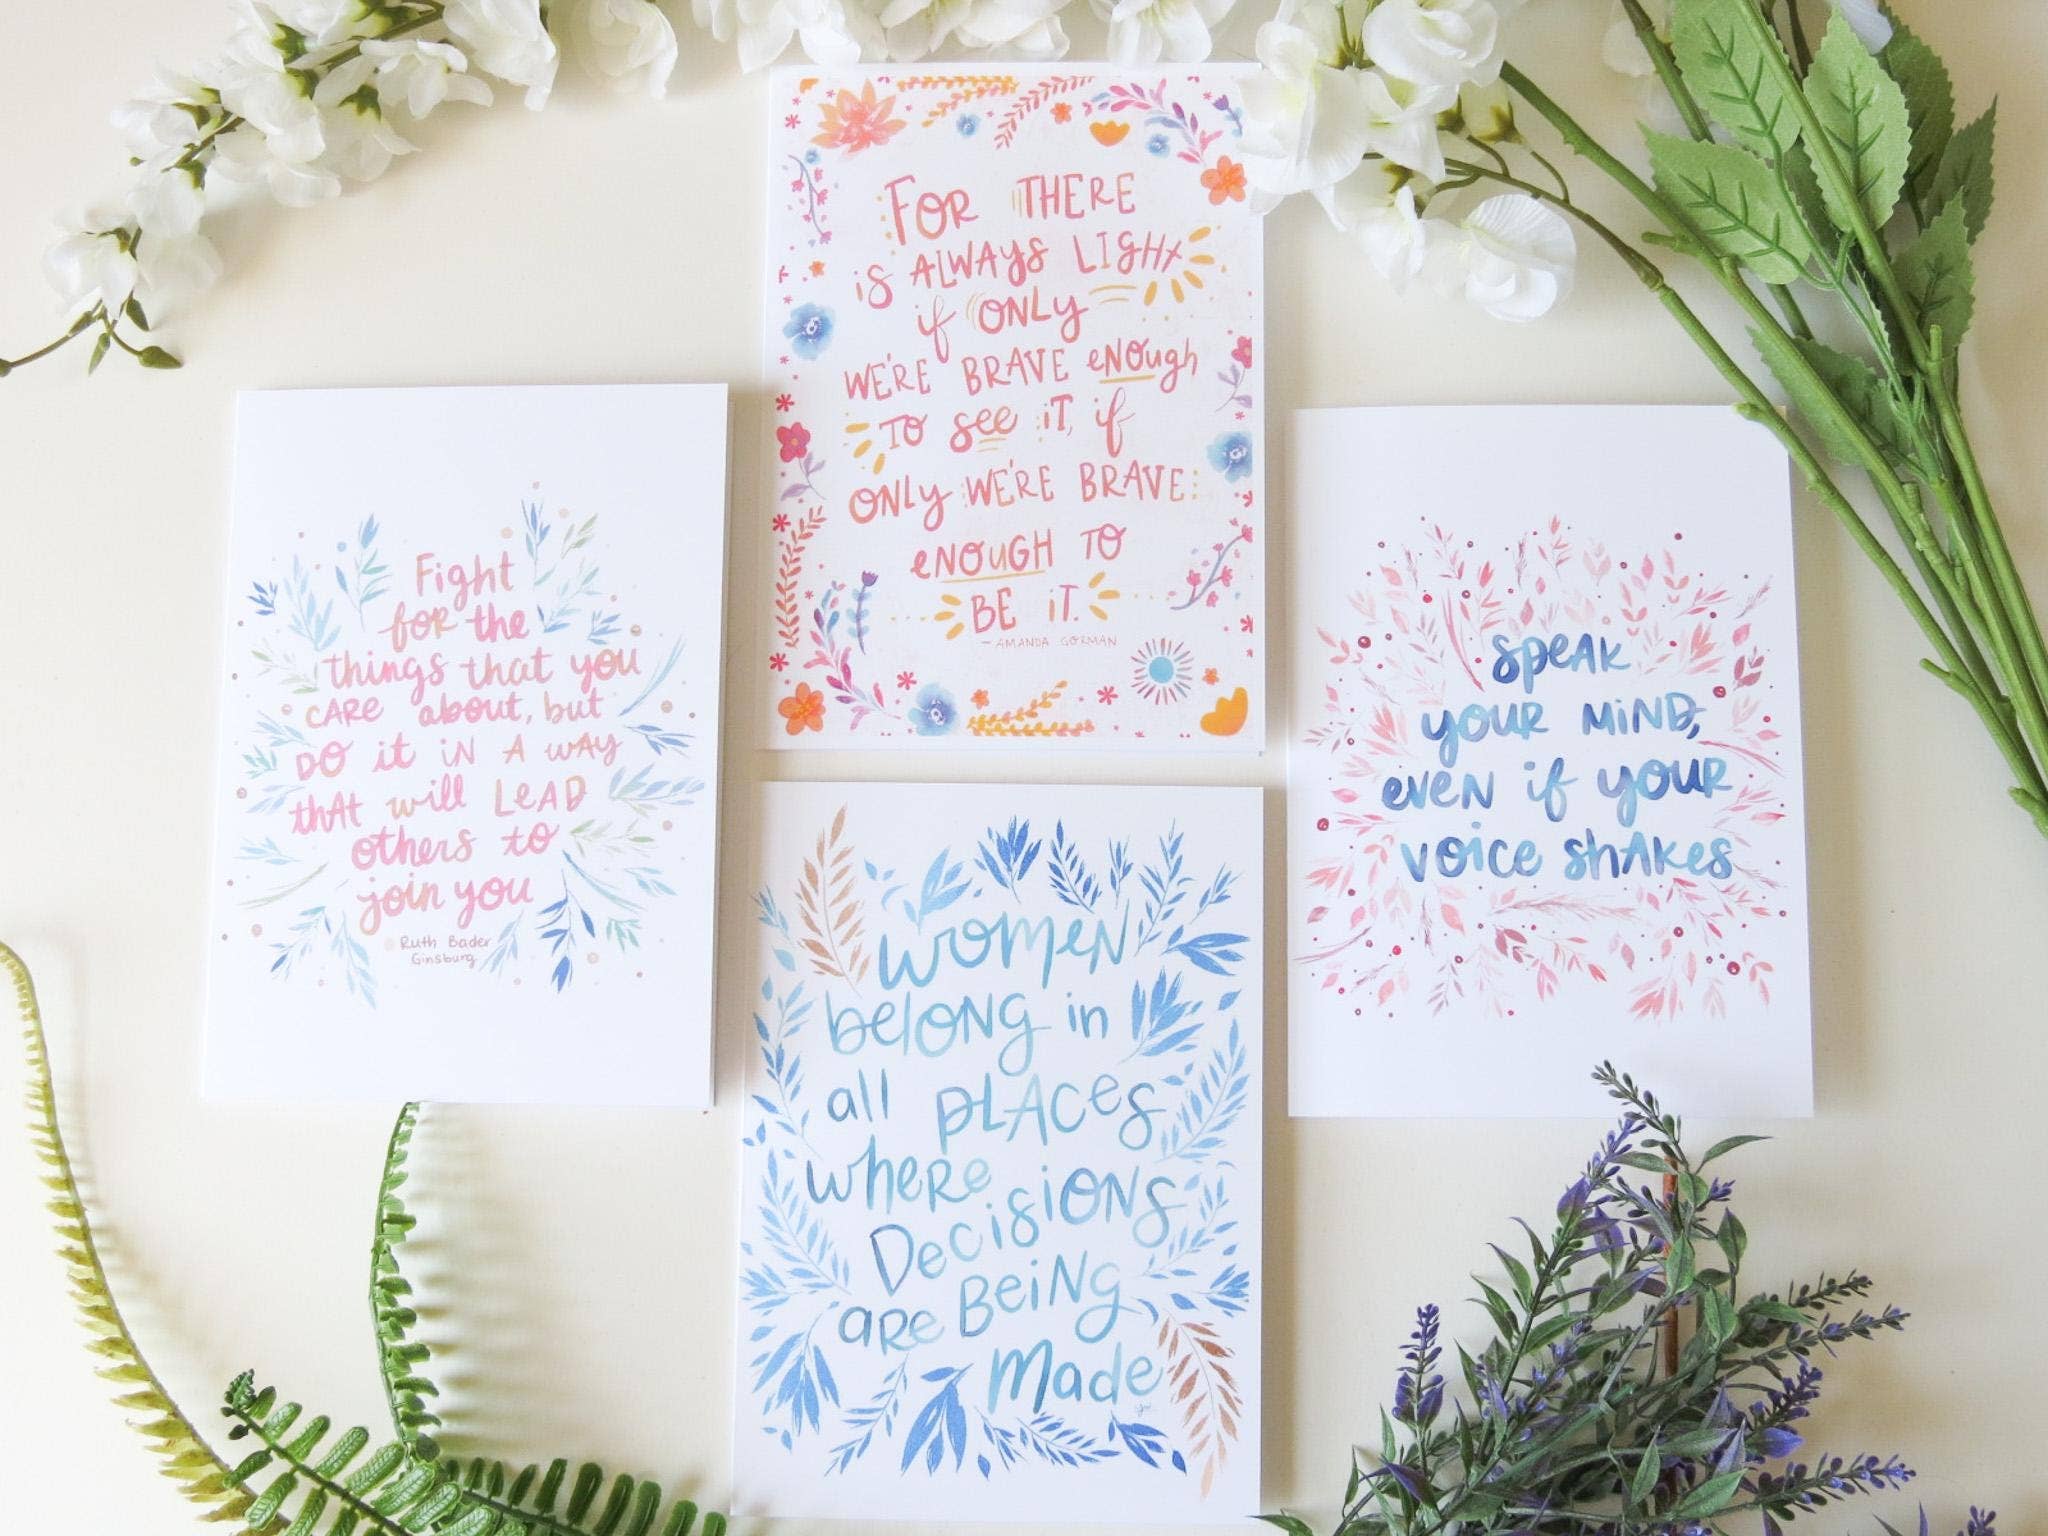 FOR THERE
is ALWAYS LIGHT
if ONLY
WE'RE BRAVE eNOugh
TO see iT, if
ONLY WE'RE BRAVE
eNOUGH TO
BE iT.
- AMANDA GORMAN
Fight
for the
things that you
CARe about, but
DO it iN A wAy
thAt will LeAD
others to
join you
Ruth Bader
Ginsburg
speAK
your MiND,
eveN if your
voice shAKes
womeN
belONg in
all pLAces
wheRe
Decisions
aRe BeiNg
Made